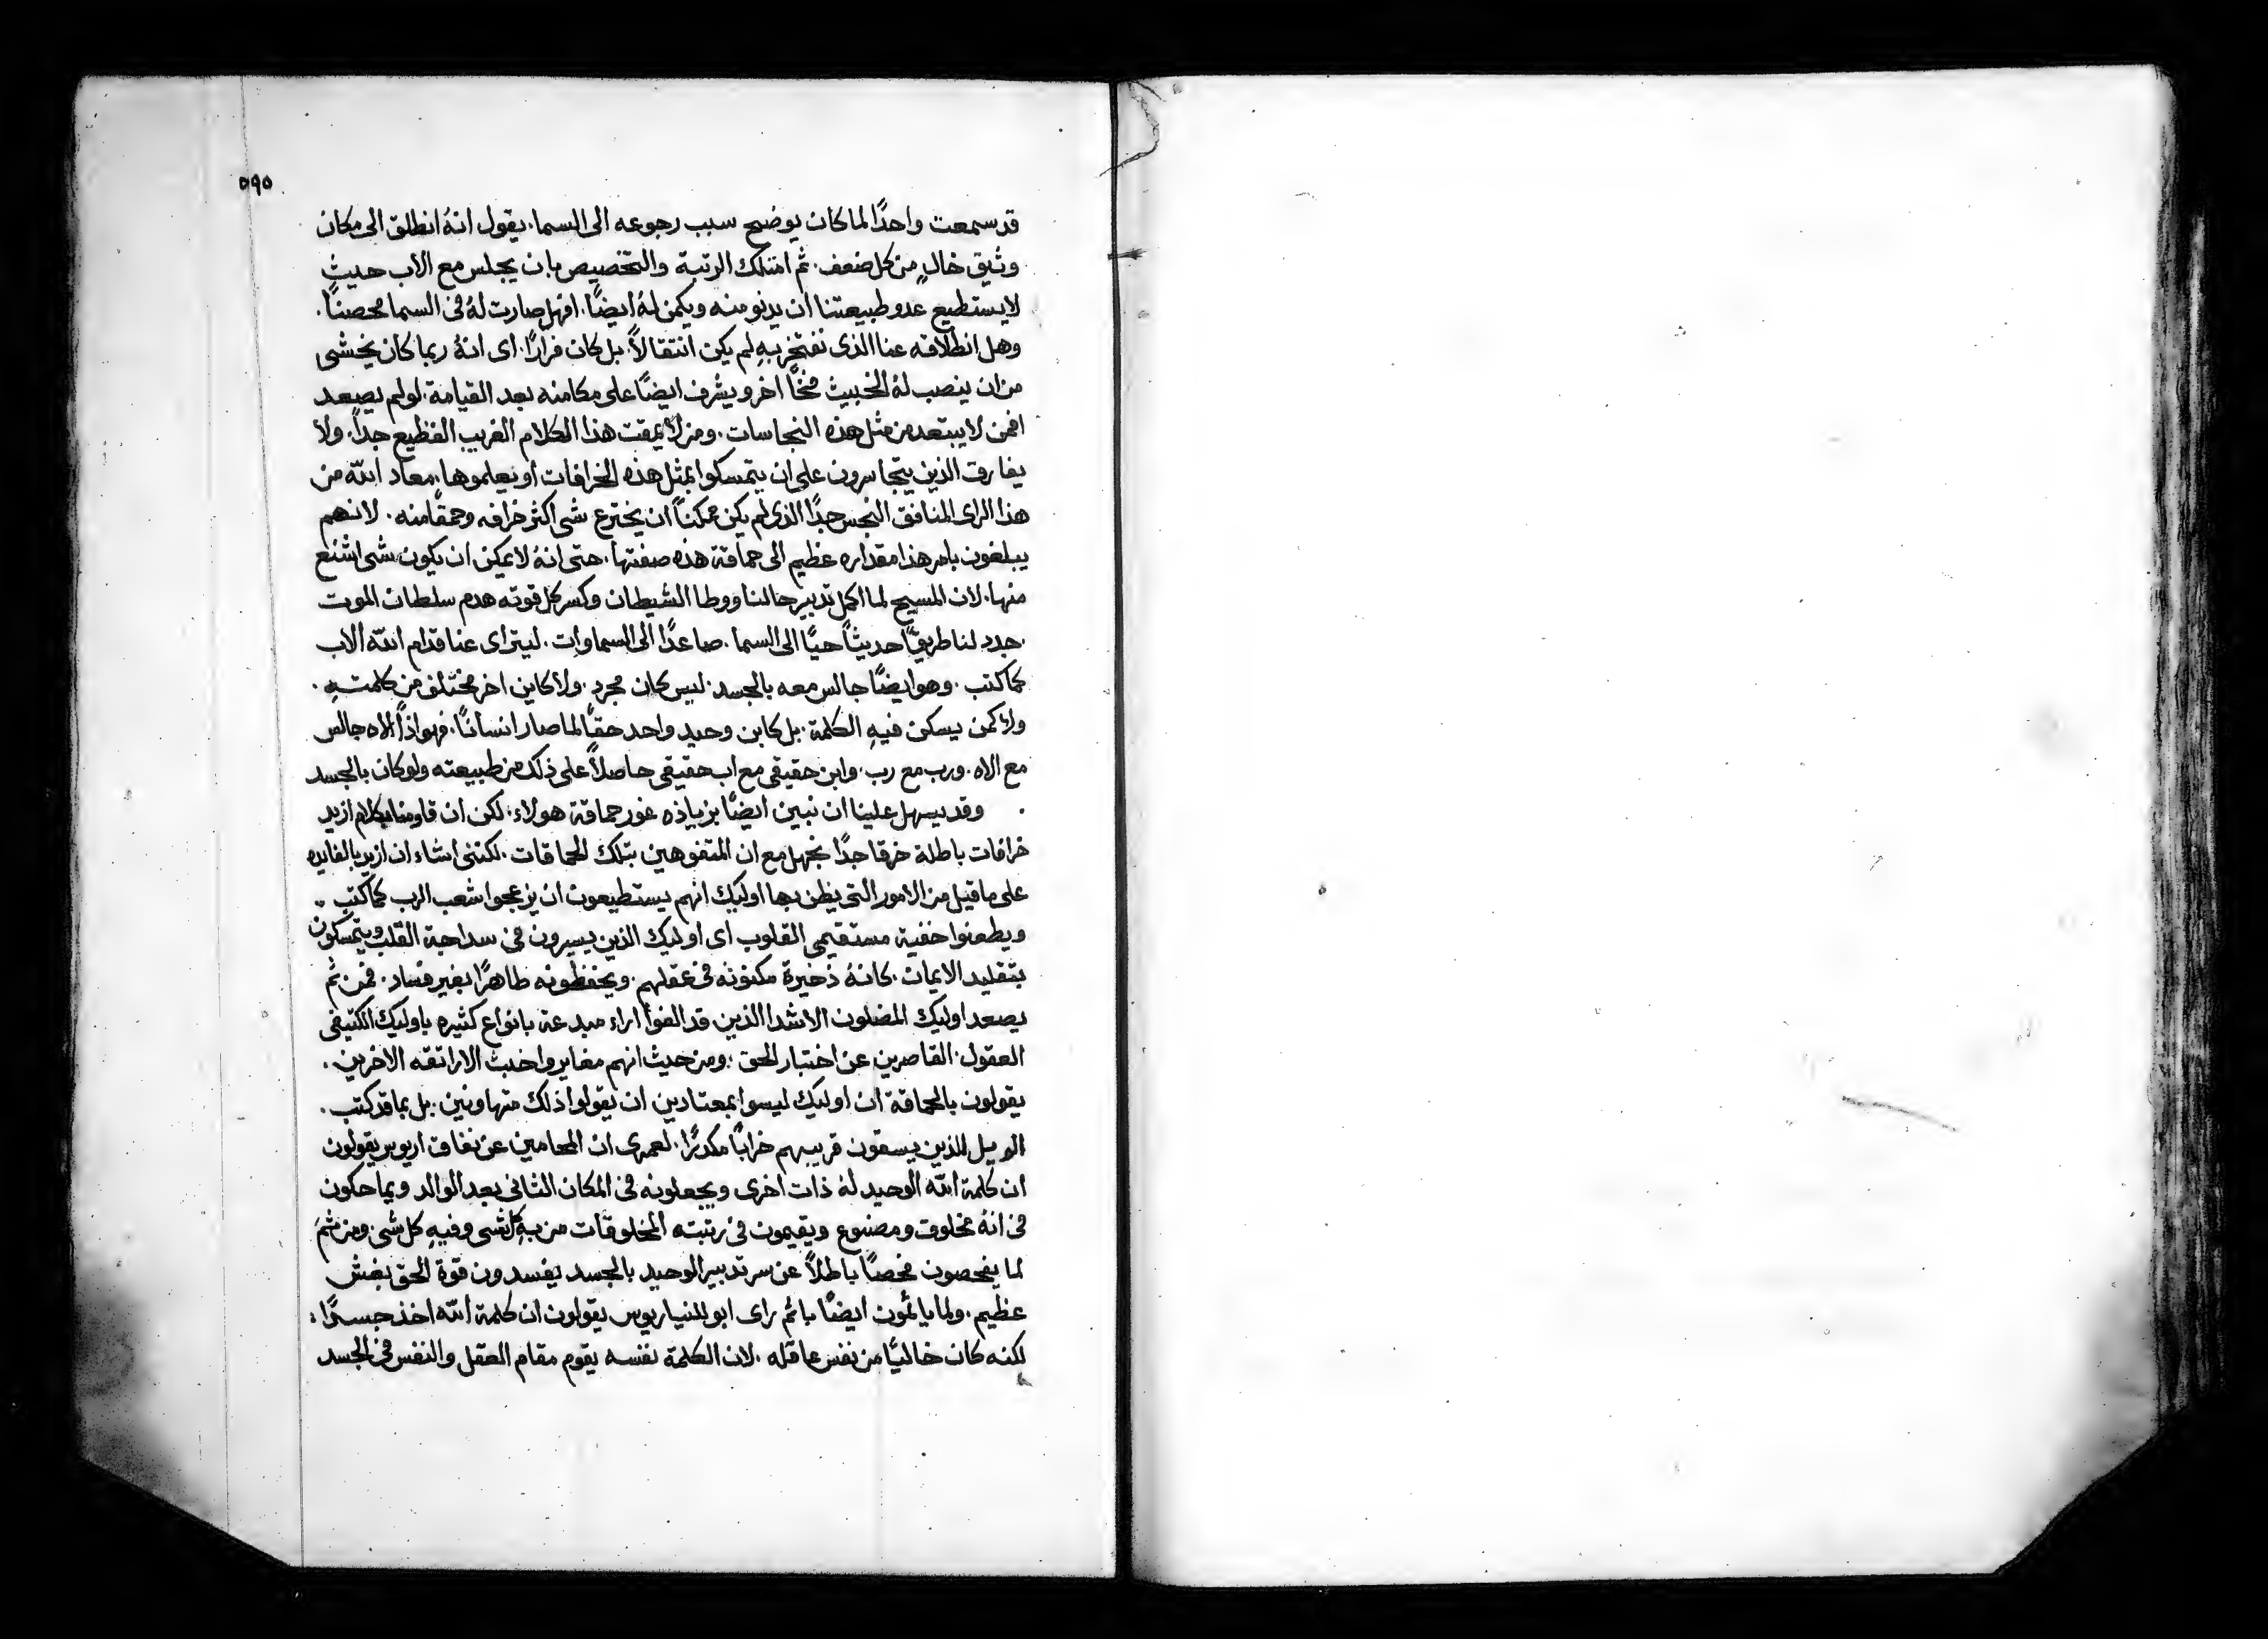 ٥٩٥
قد سمعت واحدًا لما كان يوضح سبب رجوعه الى السما. يقول انهُ انطلق الى مكان
وثيق خالٍ من كل ضعف. ثم امتلك الرتبة والتخصيص بان يجلس مع الاب حيث
لا يستطيع عدو طبيعتنا ان يدنو منه ويكمن لهُ ايضًا. افهل صارت لهُ في السما محصنًا.
وهل انطلاقه عنا الذي نفتخر بهِ لم يكن انتقالاً. بل كان فرارًا. اى انهُ ربما كان يخشى
من ان ينصب لهُ الخبيث فخًا اخر ويشرف ايضًا على مكامنه بعد القيامة. لو لم يصعد
افمن لا يبتعد من مثل هذه النجاسات. ومن لا يمقت هذا الكلام الغريب الفظيع جدًا. ولا
يفارق الذين يتجاسرون على ان يتمسكوا بمثل هذه الخرافات او يعلموها. معاد الله من
هذا الراى المنافق النجس جدًا الذى لم يكن ممكنًا ان يخترع شى اكثر خرافه وحمقًا منه. لانهم
يبلغون بامر هذا مقداره عظيم الى حماقة هذه صفتها. حتى انهُ لا يمكن ان يكون شى اشنع
منها. لان المسيح لما اكمل تدبير حالنا ووطا الشيطان وكسر كل قوته هدم سلطان الموت
. جدد لنا طريقًا حديثًا حيًا الى السما. صاعدًا الى السماوات. ليتراى عنا قدام الله الاب
كما كتب. وهو ايضًا جالس معه بالجسد. ليس كان مجرد. ولا كاين اخر مختلف من كلمتهِ.
ولا كمن يسكن فيهِ الكلمة. بل كابن وحيد واحد حقًا لما صار انسانًا. فهو اذًا الاه جالس
مع الاه. ورب مع رب. وابن حقيقى مع اب حقيقى حاصلاً على ذلك من طبيعته ولو كان بالجسد
. وقد يسهل علينا ان نبين ايضًا بزياده غور حماقة هولاء. لكن ان قاومنا بكلام ازيد
خرافات باطلة خرقا جدًا نجهل مع ان المتفوهين بتلك الحماقات. لكننى اشاء ان ازيد بالفايده
على ما قيل من الامور التى يظن بها اوليك انهم يستطيعون ان يزعجوا شعب الرب كما كتب.
ويطعنوا خفية مستقيمى القلوب اى اوليك الذين يسيرون فى سداجة القلب ويتمسكون
بتقليد الايمان. كانهُ ذخيرة مكنونه فى عقلهم. ويحفظونه طاهرًا بغير فساد. فمن ثم
يصعد اوليك المضلون الاشدا الذين قد الفوا اراء مبدعة بانواع كثيره باوليك الكثيفى
العقول. القاصرين عن اختبار الحق. ومن حيث انهم مغايروا خبث الاراتقه الاخرين.
يقولون بالحماقة ان اوليك ليسوا بمعتادين ان يقولوا ذلك متهاونين. بل بما قد كتب.
الويل للذين يسقون قريبهم خرابًا مكدرًا. لعمرى ان المحامين عن نفاق اريوس يقولون
ان كلمة الله الوحيد لهُ ذات اخرى ويجعلونه فى المكان الثانى بعد الوالد ويماحكون
فى انهُ مخلوق ومصنوع ويقيمون فى رتبته المخلوقات من بهِ كل شى وفيهِ كل شى. ومن ثمَ
لما يفحصون فحصًا باطلاً عن سر تدبير الوحيد بالجسد يفسدون قوة الحق بغش
عظيم. ولما ياثمون ايضًا باثم راى ابوللنياريوس يقولون ان كلمة الله اخذ جسدًا.
لكنه كان خاليًا من نفس عاقله. لان الكلمة نفسه يقوم مقام العقل والنفس فى الجسد